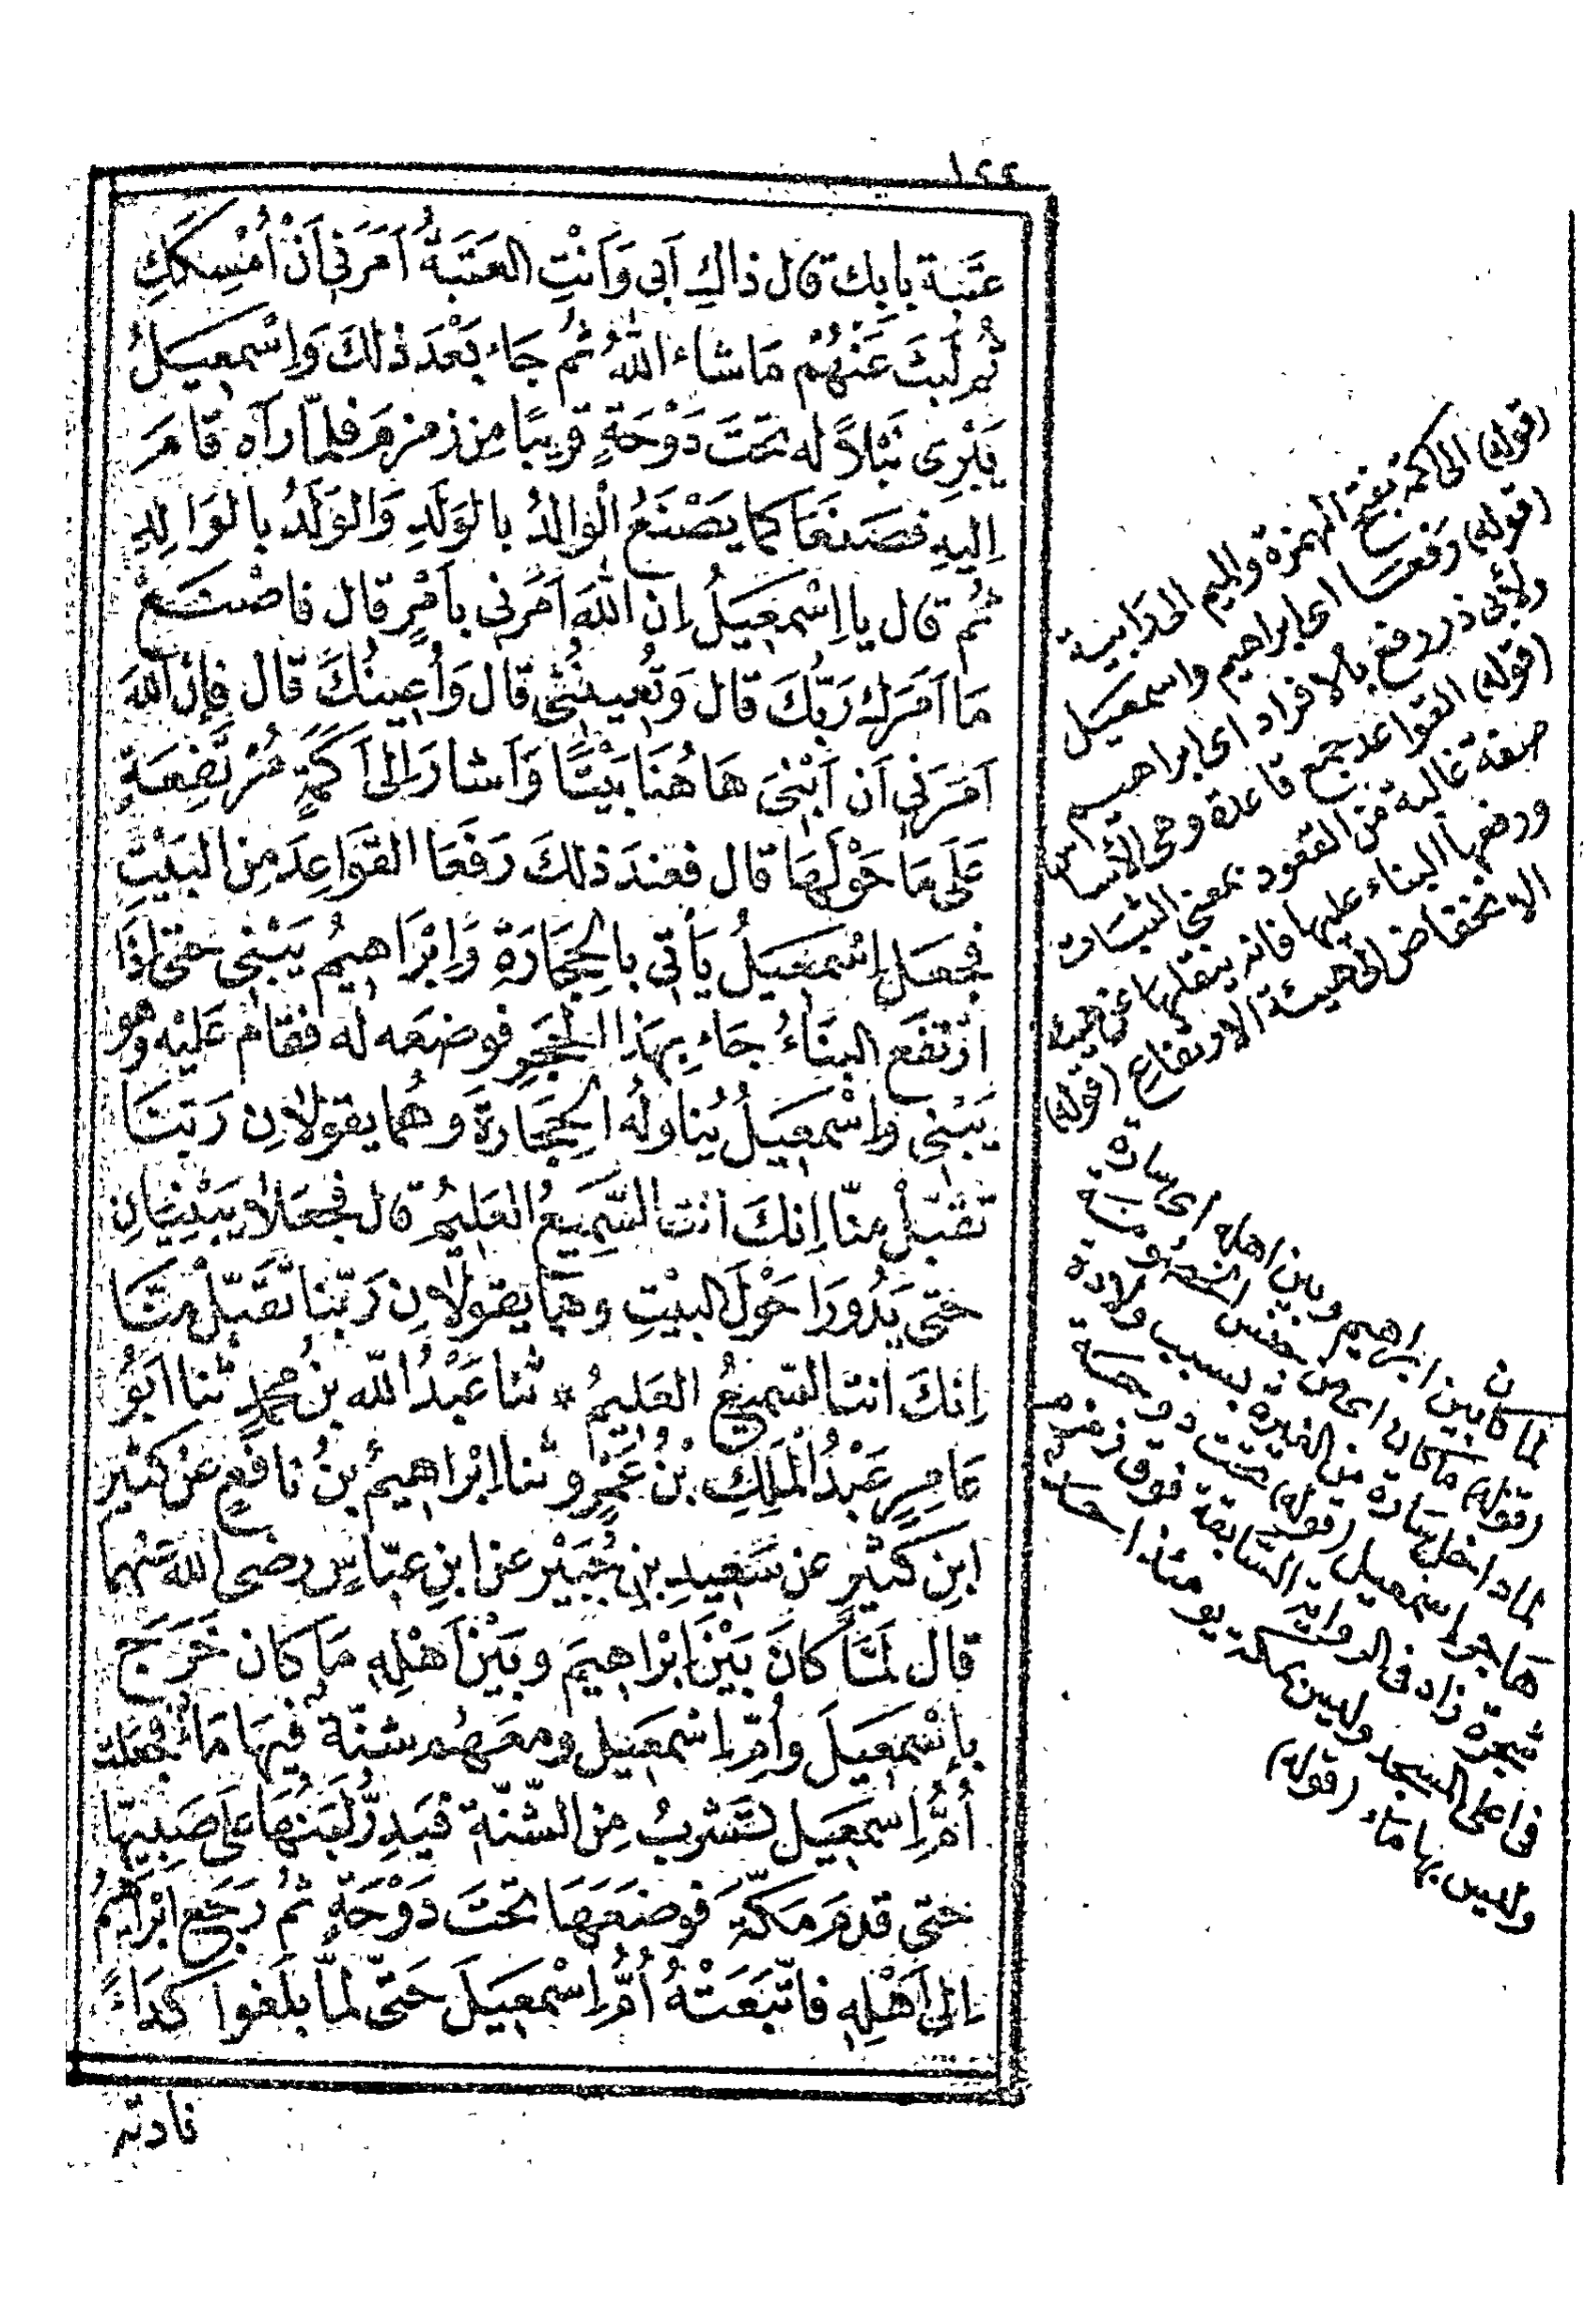 ١٤٤
عَتَبَة بابِك قال ذاكِ اَبى وَاَنْتِ العَتَبَةُ اَمَرَنى اَنْ اُمْسِكَكِ
ثُمّ لَبِثَ عَنْهُمْ مَا شاء اللّٰهُ ثُمّ جَاء بَعْدَ ذٰلكَ وَاِسْمٰعِيلُ
يَبْرِى نَبْلاً له تَحْتَ دَوْحَةٍ قَرِيبًا مِن زمزمَ فلمّا رَآه قامَ
اِليهِ فصَنَعَا كما يَصْنَعُ الْوالدُ بالوَلَدِ وَالوَلَدُ بالوَالِدِ
ثُم قال يا اِسْمٰعِيلُ اِنّ اللّٰهَ اَمَرَنى بأمْرٍ قال فاصْنَعْ
مَا اَمَرَك رَبُّكَ قال وَتُعِينُنِى قال وَاُعِينُكَ قال فإنّ اللّٰهَ
اَمَرَنى اَن اَبْنِىَ هَاهُنَا بَيْتًا وَاَشارَ اِلى اَكَمَةٍ مُرْتَفِعَةٍ
عَلَى مَا حَوْلَهَا قال فعندَ ذٰلكَ رَفَعَا القَوَاعِدَ مِنَ البَيْتِ
فجعَلَ اِسْمٰعِيلُ يَأتى بالحِجَارَةِ وَاِبْرَاهِيمُ يَبْنِى حتى اِذَا
ارْتفَعَ البِنَاءُ جَاء بِهَذا الحَجَرِ فوضعَه له فقامَ عَلَيْه وهو
يَبْنِى وَاِسْمٰعِيلُ يُناوِلُه الحِجَارَةَ وهُما يقولانِ رَبّنَا
تقَبّلْ مِنّا اِنكَ انتَ السَّمِيعُ العَلِيمُ قال فجعَلا يَبْنِيَانِ
حتى يَدُورَا حَوْلَ البيْتِ وهُمَا يقولانِ رَبّنا تَقَبّلْ مِنَّا
اِنكَ انتَ السّمِيعُ العَلِيمُ * ثنا عَبْدُ اللّٰه بنُ محمدٍ ثنا ابُو
عَامِرٍ عَبْدُ الْمَلِكِ بْنُ عَمْرٍو ثنا اِبْراهِيمُ بنُ نافِعٍ عَنْ كَثِيرِ
ابنِ كَثيْرٍ عن سَعِيدِ بنِ جُبَيْرٍ عن ابنِ عبّاسٍ رضى اللّٰهُ عنهما
قال لَمّا كانَ بَيْنَ اِبْراهِيمَ وبَيْنَ اَهْلِهِ مَا كان خَرَجَ
بإسْمٰعِيلَ واُمِّ اِسْمٰعِيل ومعَهُم شَنّةٌ فيهَا مَاءٌ فجعَلتْ
اُمُّ اِسمٰعِيل تَشْرَبُ مِنَ الشّنّةِ فيَدِرُّ لبَنُهَا عَلى صَبِيِّهَا
حتى قدِمَ مَكّةَ فوضَعَهَا تحتَ دَوْحَةٍ ثُم رَجَعَ اِبْرَاهِيمُ
اِلى اَهْلِهِ فاتّبَعَتْهُ اُمُّ اِسْمٰعِيلَ حَتّى لمّا بلَغوا كَدَاءً
نادته
(قوله) الى اكمة بفتح الهمزة والميم الى رابية
(قوله) رفعا اى ابراهيم واسمعيل
ولأبى ذر رفع بالافراد اى ابراهيم
(قوله) القواعد جمع قاعدة وهى الأساس
صفة غالبة من القعود بمعنى الثبات
ورفعها البناء عليها فانه ينقلها عن هيئة
الانخفاض الى هيئة الارتفاع (قوله)
لما كان بين ابراهيم وبين اهله اى سارة
(قوله) ما كان اى من جنس الخصومة
لما دخل سارة من الغيرة بسبب ولادة
هاجر اسمعيل (قوله) تحت دوحة
شجرة زاد فى الرواية السابقة فوق زمزم
فى اعلى المسجد وليس بمكة يومئذ احد
وليس بها ماء (قوله)